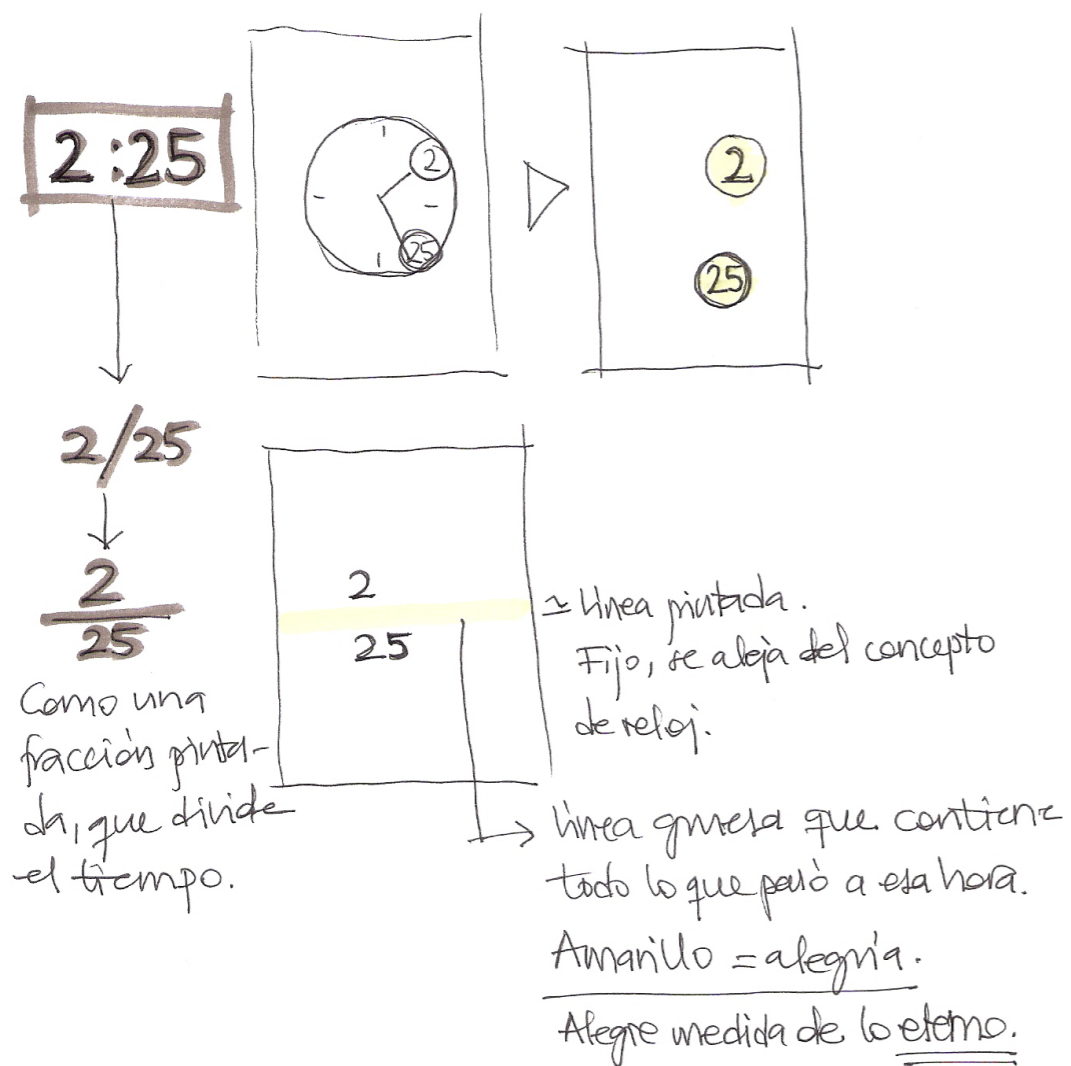 2:25
2
25
2
25
2/25
2
25
2
25
Como una
fracción pinta-
da, que divide
el tiempo.
≃ Línea pintada.
Fijo, se aleja del concepto
de reloj.
Línea gruesa que contiene
todo lo que pasó a esa hora.
Amarillo = alegría.
Alegre medida de lo eterno.